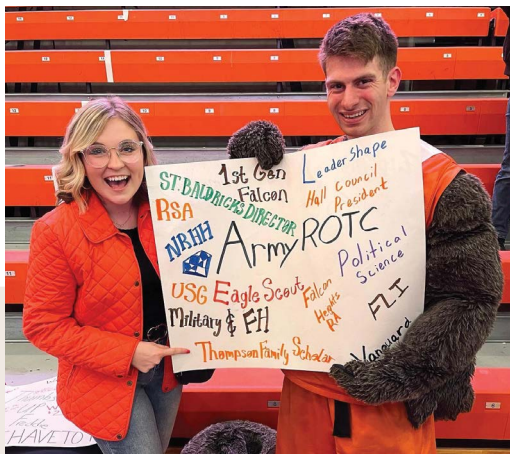 1st Gen
Falcon
LeaderShape
ST. BALDRICKS DIRECTOR
Hall Council
President
RSA
NRHH
Army ROTC
Political
Science
USG
Eagle Scout
Falcon
Heights
RA
FLI
Military & FH
Vanguard
Thompson Family Scholar
CHAVE TO